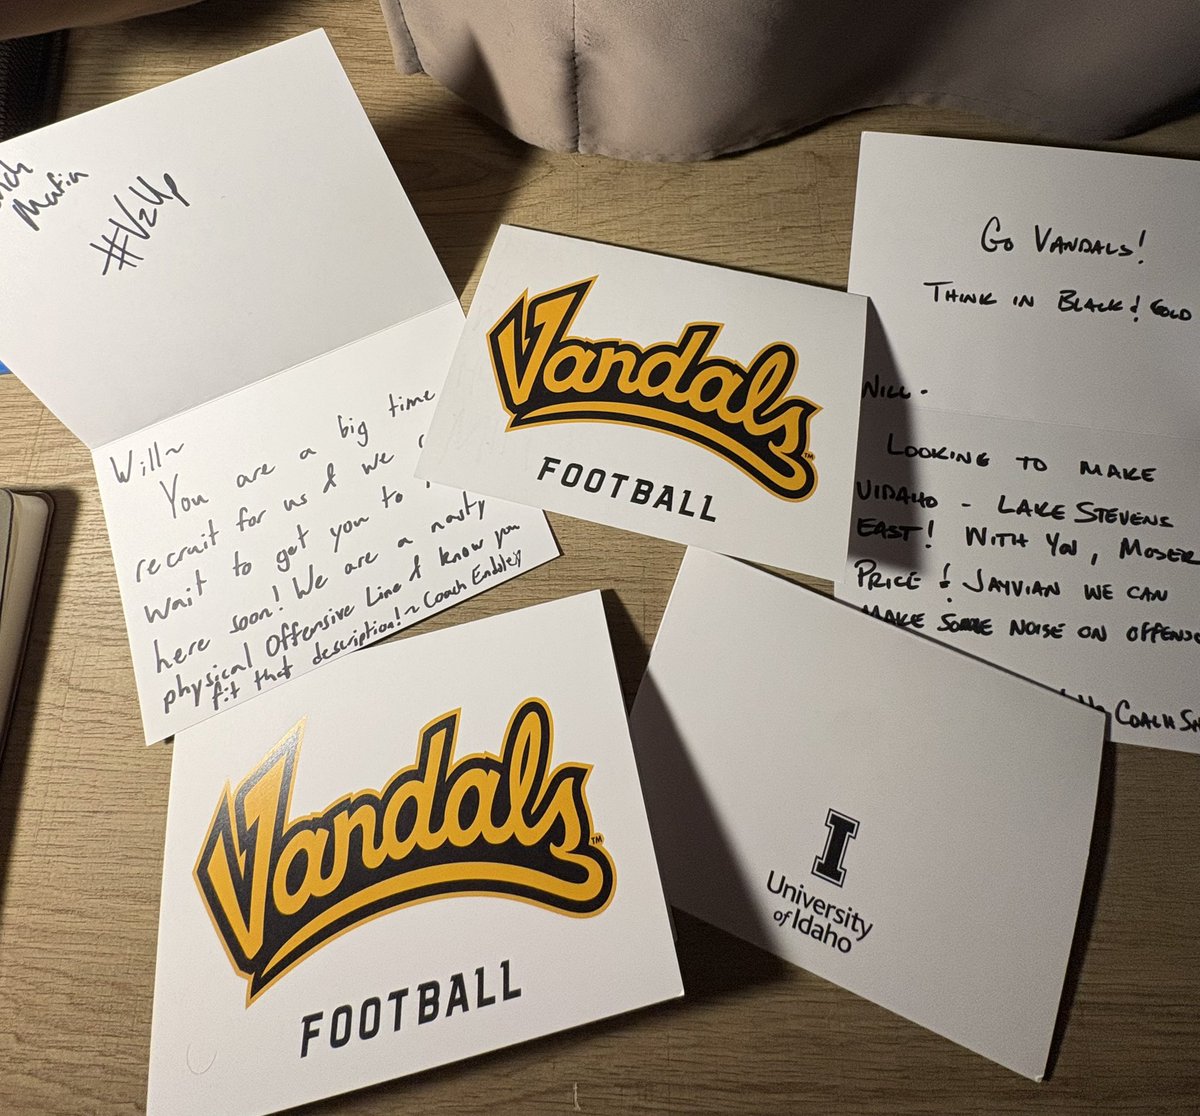 Mafia
#VzUp
Will~
You are a big time
recruit for us & we
wait to get you to
here soon! We are a nasty
physical Offensive Line & know you
fit that description! ~ Coach
Vandals
TM
FOOTBALL
GO VANDALS!
THINK IN BLACK & GOLD
WILL -
LOOKING TO MAKE
VIDAHO - LAKE STEVENS
EAST! WITH YOU, MOSER
PRICE & JAYVIAN WE CAN
MAKE SOME NOISE ON OFFENSE
COACH
Vandals
TM
FOOTBALL
I
University
of Idaho